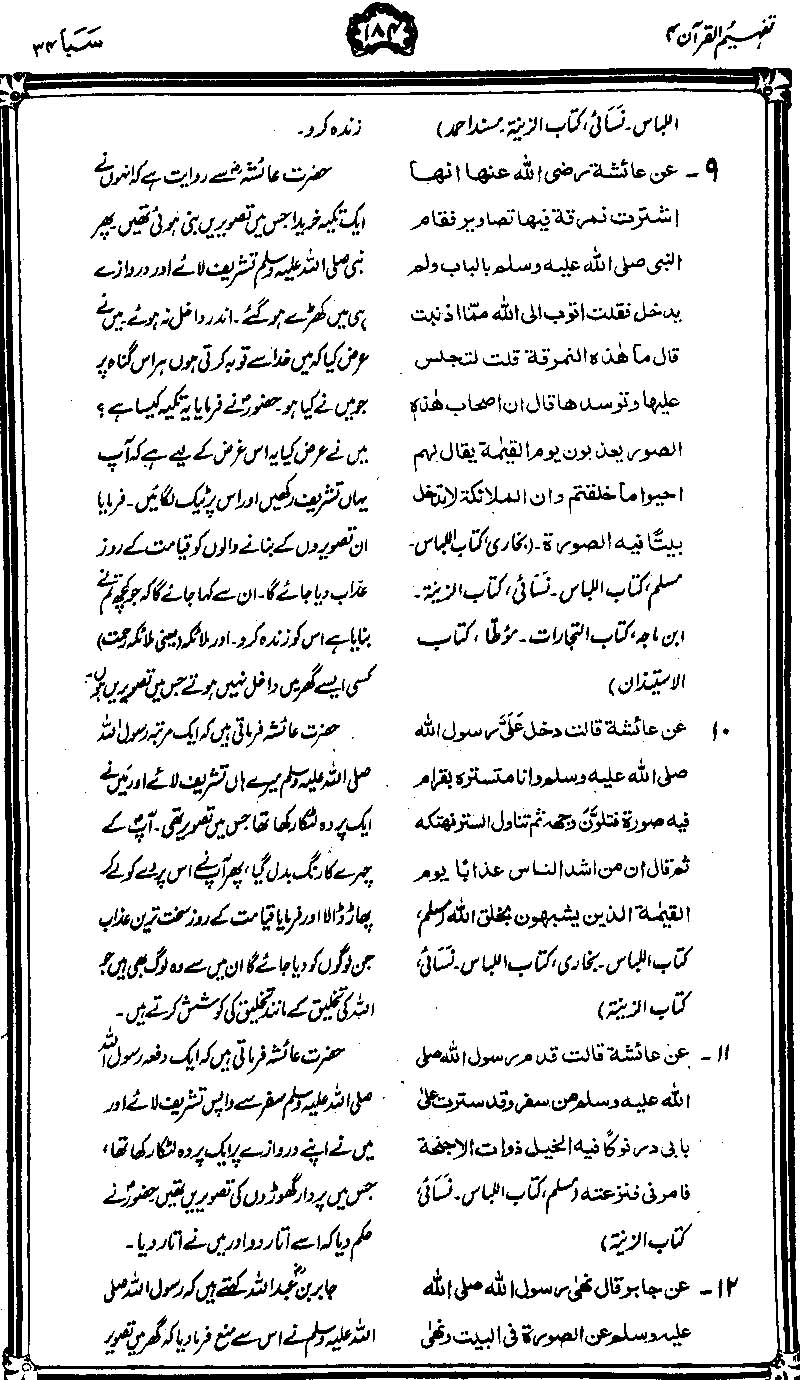 تفہیم القرآن ۴
۱۸۴
سَبَا ۳۴
اللباس۔ نَسَائی، کتاب الزینۃ۔ مسند احمد)
۹۔ عن عائشة رضی الله عنها انها
اشترت نمرقة فیها تصاویر فقام
النبی صلی الله علیه وسلم بالباب ولم
یدخل فقلت اتوب الی الله ممّا اذنبت
قال ما هٰذہ النمرقة قلت لتجلس
علیها وتوسدها قال ان اصحاب هٰذہ
الصور یعذبون یوم القیٰمة یقال لهم
احیوا ما خلقتم وان الملائکة لا تدخل
بیتًا فیه الصورة۔ (بخاری، کتاب اللباس۔
مسلم، کتاب اللباس۔ نَسَائی، کتاب الزینۃ۔
ابن ماجہ، کتاب التجارات۔ مؤطا، کتاب
الاستیذان)
۱۰ عن عائشة قالت دخل عَلَیَّ رسول الله
صلی الله علیه وسلم وانا متسترة بقرام
فیه صورة فتلوَّن وجهه ثم تناول الستر فهتکه
ثم قال ان من اشد الناس عذابًا یوم
القیٰمة الذین یشبهون بخلق الله (مسلم،
کتاب اللباس۔ بخاری، کتاب اللباس۔ نَسَائی،
کتاب الزینۃ)
۱۱۔ عن عائشة قالت قدم رسول الله صلی
الله علیه وسلم من سفر وقد سترت علیٰ
بابی درنوکًا فیه الخیل ذوات الاجنحة
فامرنی فنزعته (مسلم، کتاب اللباس۔ نَسَائی،
کتاب الزینۃ)
۱۲۔ عن جابر قال نهیٰ رسول الله صلی الله
علیه وسلم عن الصورة فی البیت ونهیٰ
زندہ کرو۔
حضرت عائشہؓ سے روایت ہے کہ انہوں نے
ایک تکیہ خریدا جس میں تصویریں بنی ہوئی تھیں۔ پھر
نبی صلی اللہ علیہ وسلم تشریف لائے اور دروازے
ہی میں کھڑے ہو گئے۔ اندر داخل نہ ہوئے۔ میں نے
عرض کیا کہ میں خدا سے توبہ کرتی ہوں ہر اس گناہ پر
جو میں نے کیا ہو۔ حضورؐ نے فرمایا یہ تکیہ کیسا ہے؟
میں نے عرض کیا یہ اس غرض کے لیے ہے کہ آپ
یہاں تشریف رکھیں اور اس پر ٹیک لگائیں۔ فرمایا
ان تصویروں کے بنانے والوں کو قیامت کے روز
عذاب دیا جائے گا۔ ان سے کہا جائے گا کہ جو کچھ تم نے
بنایا ہے اس کو زندہ کرو۔ اور ملائکہ (یعنی ملائکہ رحمت)
کسی ایسے گھر میں داخل نہیں ہوتے جس میں تصویریں ہوں۔
حضرت عائشہ فرماتی ہیں کہ ایک مرتبہ رسول اللہ
صلی اللہ علیہ وسلم میرے ہاں تشریف لائے اور میں نے
ایک پردہ لٹکا رکھا تھا جس میں تصویر تھی۔ آپؐ کے
چہرے کا رنگ بدل گیا، پھر آپؐ نے اس پردے کو لے کر
پھاڑ ڈالا اور فرمایا قیامت کے روز سخت ترین عذاب
جن لوگوں کو دیا جائے گا ان میں سے وہ لوگ بھی ہیں جو
اللہ کی تخلیق کے مانند تخلیق کی کوشش کرتے ہیں۔
حضرت عائشہ فرماتی ہیں کہ ایک دفعہ رسول اللہ
صلی اللہ علیہ وسلم سفر سے واپس تشریف لائے اور
میں نے اپنے دروازے پر ایک پردہ لٹکا رکھا تھا،
جس میں پردار گھوڑوں کی تصویریں تھیں۔ حضورؐ نے
حکم دیا کہ اسے اتار دو اور میں نے اتار دیا۔
جابر بن عبداللہؓ کہتے ہیں کہ رسول اللہ صلی
اللہ علیہ وسلم نے اس سے منع فرما دیا کہ گھر میں تصویر